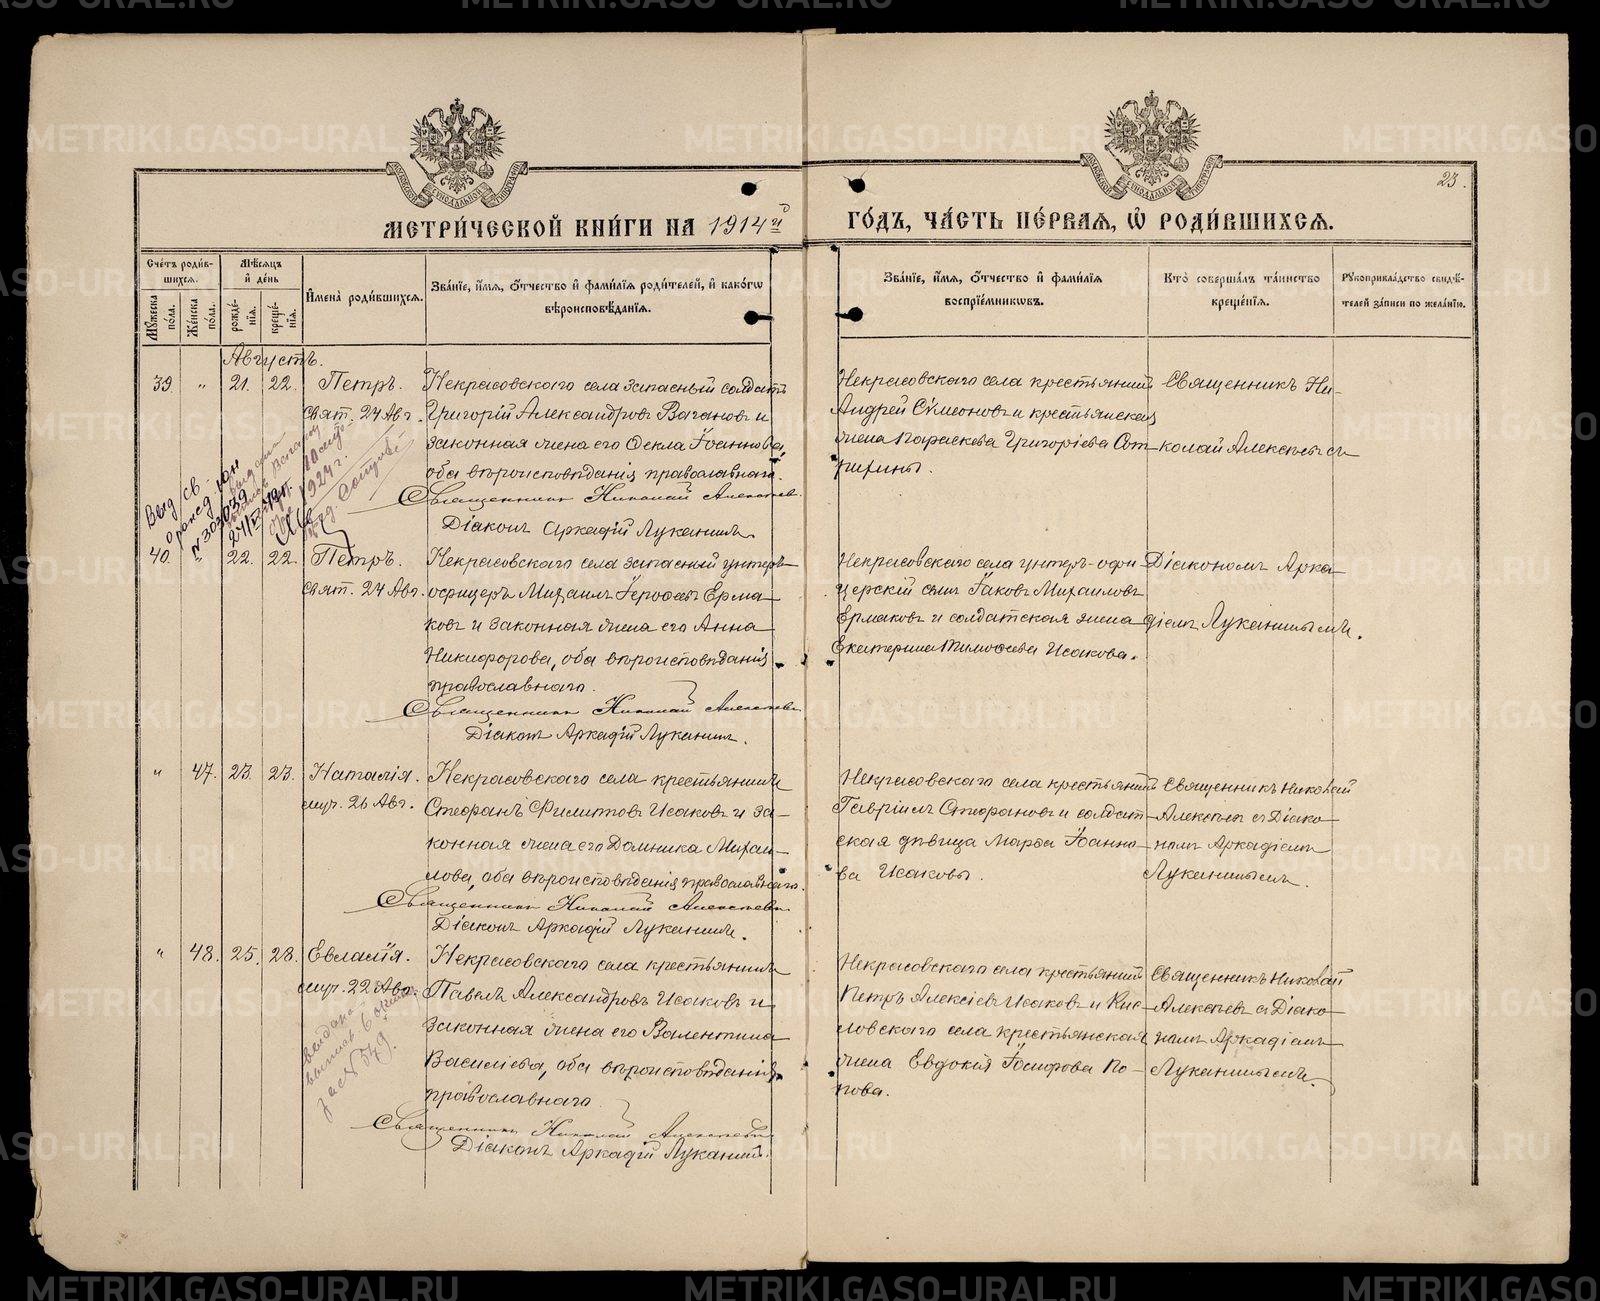 МЕТРИ́ЧЕСКОЙ КНИ́ГИ НА 1914й
ГО́ДЪ, ЧА́СТЬ ПЕ́РВАѦ, Ѡ҆ РОДИ́ВШИХСѦ.
23.
Сче́тъ роди́в-
шихсѧ.
Мꙋ́жеска
по́ла.
Же́нска
по́ла.
Мѣ́сѧцъ
и҆ де́нь
рожде́-
нїѧ.
креще́-
нїѧ.
И҆мена̀ роди́вшихсѧ.
Зва́нїе, и҆́мѧ, ѻ҆́тчество и҆ фами́лїѧ роди́телей, и҆ како́гѡ
вѣроисповѣ́данїѧ.
Зва́нїе, и҆́мѧ, ѻ҆́тчество и҆ фами́лїѧ
воспрїе́мникѡвъ.
Кто̀ соверша́лъ та́инство
креще́нїѧ.
Рꙋкоприкла́дство свидѣ́-
телей за́писи по жела́нїю.
Августъ.
39 " 21. 22. Петръ.
свят. 24 Авг.
Некрасовскаго села запасный солдатъ
Григорій Александровъ Вагановъ и
законная жена его Ѳекла Іоаннова,
оба вѣроисповѣданія православнаго.
Священникъ Николай Алексѣевъ
Діаконъ Аркадій Луканинъ
Некрасовскаго села крестьянинъ
Андрей Сѵмеоновъ и крестьянская
жена Параскева Григоріева Сот-
рихины.
Священникъ Ни-
колай Алексѣевъ съ
Выд св-
№ 303039
1924 г.
40. 22. 22. Петръ.
свят. 24 Авг.
Некрасовскаго села запасный унтеръ-
офицеръ Михаилъ Іероѳеевъ Ерма-
ковъ и законная жена его Анна
Никифорова, оба вѣроисповѣданія
православнаго.
Священникъ Николай Алексѣевъ
Діаконъ Аркадій Луканинъ.
Некрасовскаго села унтеръ-офи-
церскій сынъ Іаковъ Михаиловъ
Ермаковъ и солдатская жена
Екатерина Тимоѳеева Исакова.
Діакономъ Арка-
діемъ Луканинымъ.
" 47. 23. 23. Наталія.
муч. 26 Авг.
Некрасовскаго села крестьянинъ
Стефанъ Филипповъ Исаковъ и за-
конная жена его Домника Михаи-
лова, оба вѣроисповѣданія православнаго.
Священникъ Николай Алексѣевъ
Діаконъ Аркадій Луканинъ.
Некрасовскаго села крестьянинъ
Гавріилъ Стефановъ и солдат-
ская дѣвица Марѳа Іоанно-
ва Исаковы.
Священникъ Николай
Алексѣевъ съ Діако-
номъ Аркадіемъ
Луканинымъ.
" 48. 25. 28. Евлалія.
муч. 22 Авг.
Некрасовскаго села крестьянинъ
Павелъ Александровъ Исаковъ и
законная жена его Валентина
Василіева, оба вѣроисповѣданія
православнаго.
Священникъ Николай Алексѣевъ
Діаконъ Аркадій Луканинъ.
Некрасовскаго села крестьянинъ
Петръ Алексіевъ Исаковъ и Кис-
ловскаго села крестьянская
жена Евдокія Іосифова По-
пова.
Священникъ Николай
Алексѣевъ съ Діако-
номъ Аркадіемъ
Луканинымъ.
выдана
METRIKI.GASO-URAL.RU